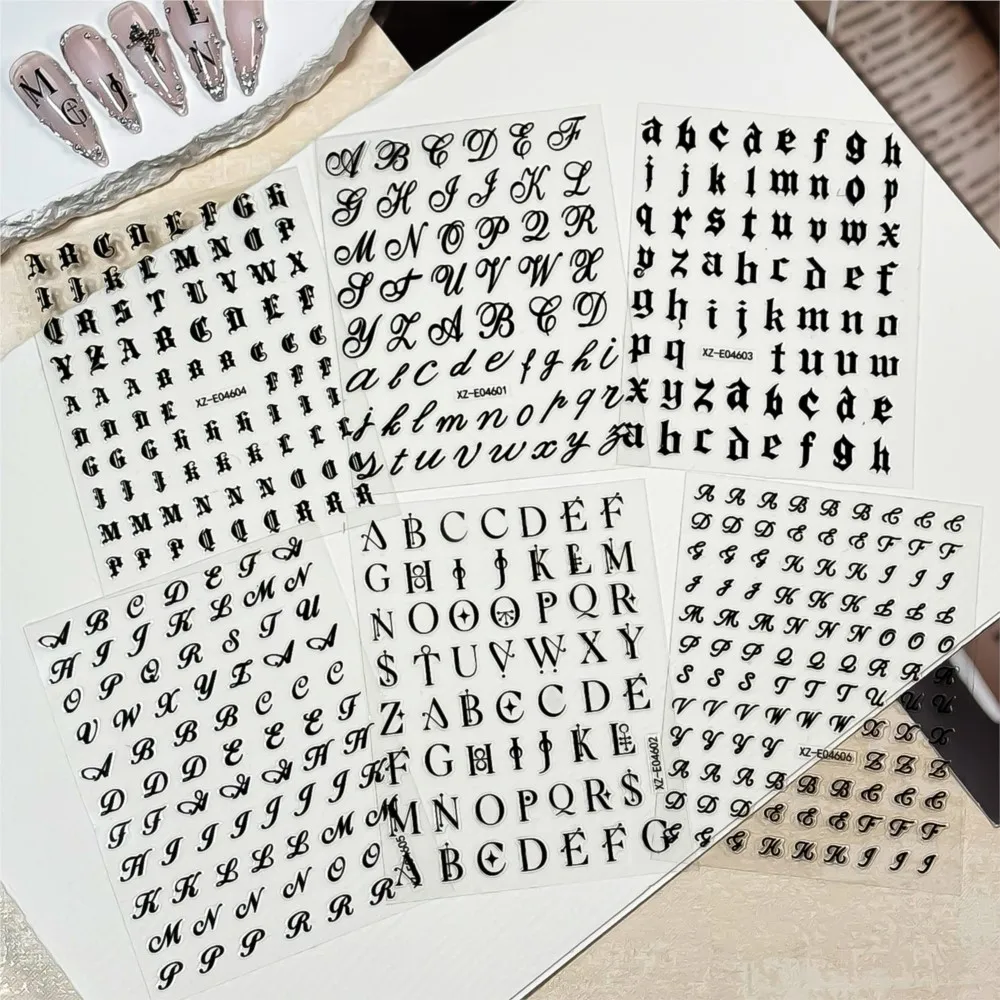 M
G J
E
N
A B C D E F G H
I J K L M N O P
Q R S T U V W X
Y Z A B C D E F
A A A B B B C C C
XZ-E04604
D D D E F F F
G G G H H H I I I
J J J K K K L L L
M M M N N N O O O
P P P Q Q Q R R R
A B C D E F
G H I J K L
M N O P Q R
S T U V W X
Y Z A B C D
a b c d e f g h i
XZ-E04601
j k l m n o p q r
s t u v w x y z
a b c d e f g h
i j k l m n o p
q r s t u v w x
y z a b c d e f
g h i j k m n o
p q XZ-E04603 t u v w
x y z a b c d e
a b c d e f g h
A B C D E F A
H I J K L M N
O P Q R S T U
V W X Y Z A A
A B B B C C C
D D D E E E F
F F A A A H H
H I I I J J K
K K L L L M M
M N N N O O
P P P R R R
A B C C D E F
G H I J K E M
N O O O P Q R
S T U V W X Y
Z A B C C D E
F G H I J K E
XZ-E04602
M N O P Q R S
A B C D E F G
A A A B B B C C C
D D D E E E F F F
G G G H H H I I I
J J J K K K L L L
M M M N N N O O O
P P P Q Q Q R R R
S S S T T T U U U
V V V W W W X X X
Y Y Y Y XZ-E04606 Z Z Z
A A A B B B C C C
D D D E E E F F F
G G G H H H I I I